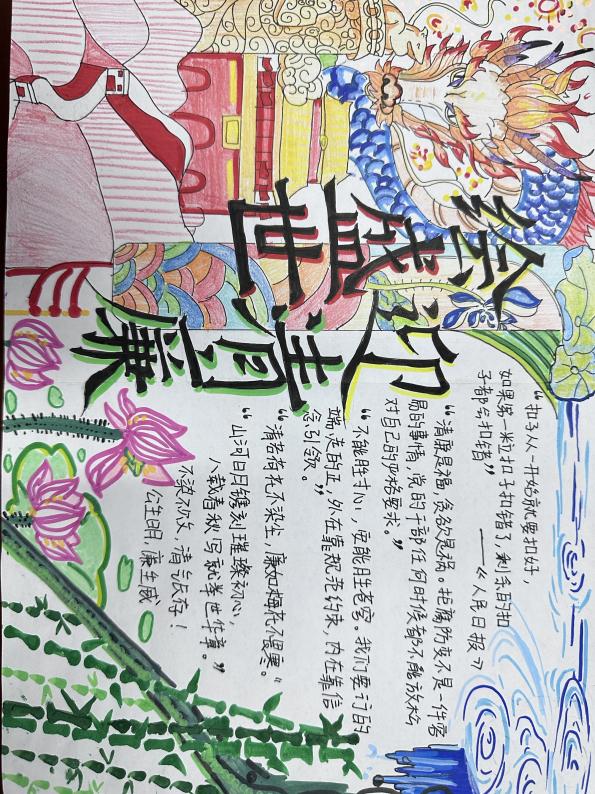 绘盛世
迎清廉
“扣子从一开始就要扣好，
如果第一粒扣子扣错了，剩余的扣
子都会扣错”
——《人民日报》
“清廉是福，贪欲是祸。拒腐防变不是一件容
易的事情，党的干部任何时候都不能放松
对自己的严格要求。”
“不能胜寸心，安能胜苍穹。我们要订的
端，走的正，外在靠规范约束，内在靠信
念引领。”
“清若荷花不染尘，廉如梅花不畏寒。”
“山河日月镌刻璀璨初心，
八载春秋写就举世华章。”
不染，清存！
公生明，廉生威